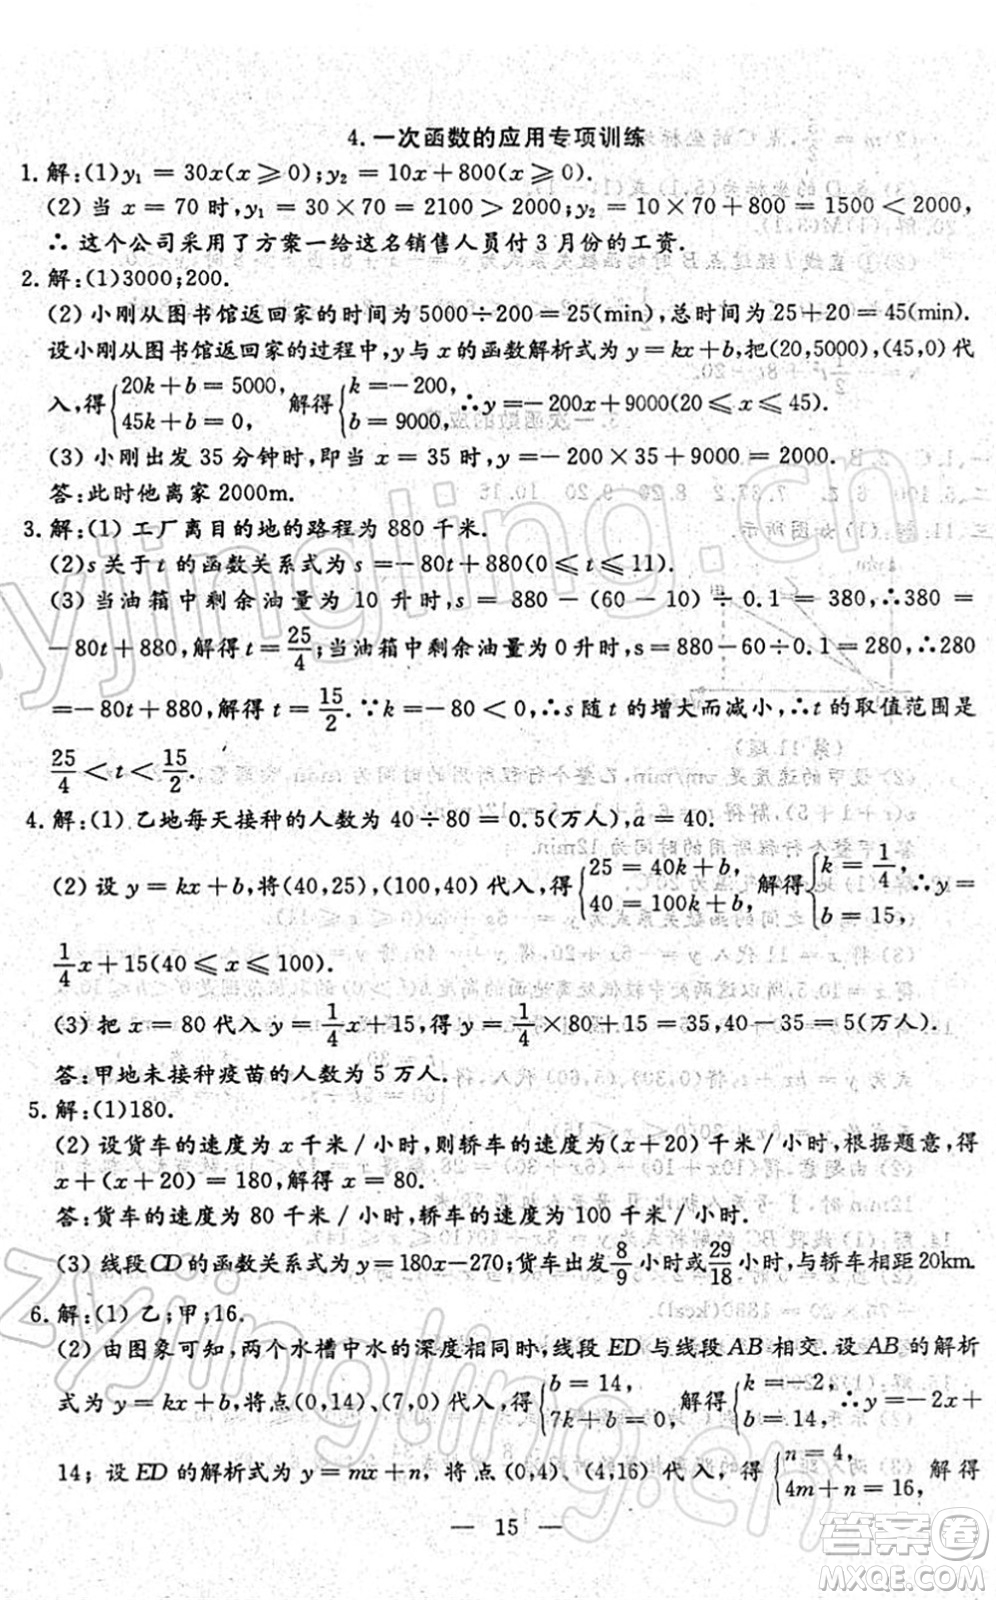 4.一次函数的应用专项训练
1.解:(1)y₁=30x(x⩾0);y₂=10x+800(x⩾0).
(2)当x=70时,y₁=30×70=2100>2000;y₂=10×70+800=1500<2000,
∴这个公司采用了方案一给这名销售人员付3月份的工资.
2.解:(1)3000;200.
(2)小刚从图书馆返回家的时间为5000÷200=25(min),总时间为25+20=45(min).
设小刚从图书馆返回家的过程中,y与x的函数解析式为y=kx+b,把(20,5000),(45,0)代
入,得{20k+b=5000, 45k+b=0, 解得{k=-200, b=9000, ∴y=-200x+9000(20⩽x⩽45).
(3)小刚出发35分钟时,即当x=35时,y=-200×35+9000=2000.
答:此时他离家2000m.
3.解:(1)工厂离目的地的路程为880千米.
(2)s关于t的函数关系式为s=-80t+880(0⩽t⩽11).
(3)当油箱中剩余油量为10升时,s=880-(60-10)÷0.1=380,∴380=
-80t+880,解得t=25/4;当油箱中剩余油量为0升时,s=880-60÷0.1=280,∴280
=-80t+880,解得t=15/2.∵k=-80<0,∴s随t的增大而减小,∴t的取值范围是
25/4<t<15/2.
4.解:(1)乙地每天接种的人数为40÷80=0.5(万人),a=40.
(2)设y=kx+b,将(40,25),(100,40)代入,得{25=40k+b, 40=100k+b, 解得{k=1/4, b=15, ∴y=
1/4x+15(40⩽x⩽100).
(3)把x=80代入y=1/4x+15,得y=1/4×80+15=35,40-35=5(万人).
答:甲地未接种疫苗的人数为5万人.
5.解:(1)180.
(2)设货车的速度为x千米/小时,则轿车的速度为(x+20)千米/小时,根据题意,得
x+(x+20)=180,解得x=80.
答:货车的速度为80千米/小时,轿车的速度为100千米/小时.
(3)线段CD的函数关系式为y=180x-270;货车出发8/9小时或29/18小时,与轿车相距20km.
6.解:(1)乙;甲;16.
(2)由图象可知,两个水槽中水的深度相同时,线段ED与线段AB相交.设AB的解析
式为y=kx+b,将点(0,14)、(7,0)代入,得{b=14, 7k+b=0, 解得{k=-2, b=14, ∴y=-2x+
14;设ED的解析式为y=mx+n,将点(0,4),(4,16)代入,得{n=4, 4m+n=16, 解得
— 15 —
zyjingling.cn
zyjingling.cn
答案圈
MXQE.COM